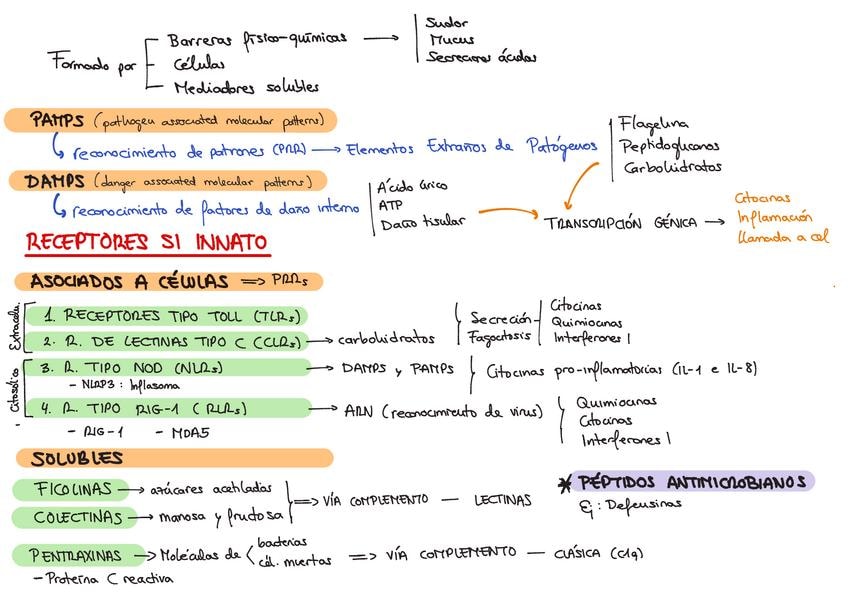 Formado por
Barreras físico-químicas →
Células
Mediadores solubles
Sudor
Mucus
Secreciones ácidas
PAMPS (pathogen associated molecular patterns)
reconocimiento de patrones (PRR) → Elementos Extraños de Patógenos
Flagelina
Peptidoglicanos
Carbohidratos
DAMPS (danger associated molecular patterns)
reconocimiento de factores de daño interno
Ácido úrico
ATP
Daño tisular
TRANSCRIPCIÓN GÉNICA →
Citocinas
Inflamación
Llamada a cel
RECEPTORES SI INNATO
ASOCIADOS A CÉLULAS => PRRs
Extracelu.
1. RECEPTORES TIPO TOLL (TLRs)
2. R. DE LECTINAS TIPO C (CCLRs) → carbohidratos
Secreción
Fagocitosis
Citocinas
Quimiocinas
Interferones I
Citosólico
3. R. TIPO NOD (NLRs) → DAMPS y PAMPS
Citocinas pro-inflamatorias (IL-1 e IL-8)
- NLRP3: Inflasoma
4. R. TIPO RIG-1 (RLRs) → ARN (reconocimiento de virus)
- RIG-1 - MDA5
Quimiocinas
Citocinas
Interferones I
SOLUBLES
FICOLINAS → azúcares acetilados
COLECTINAS → manosa y fructosa
=> VÍA COMPLEMENTO — LECTINAS
* PÉPTIDOS ANTIMICROBIANOS
Ej: Defensinas
PENTRAXINAS → Moléculas de
bacterias
cél. muertas
=> VÍA COMPLEMENTO — CLÁSICA (C1q)
- Proteína C reactiva